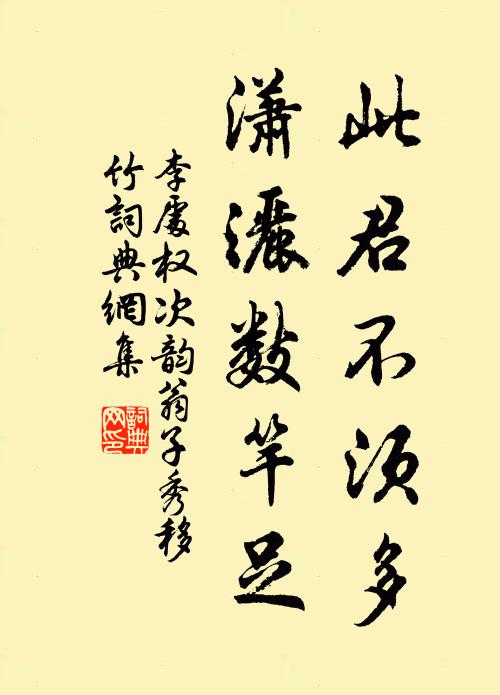 此君不須多
瀟灑數竿足
李處权次韵翁子秀移
竹詞典網集
詞典
网印